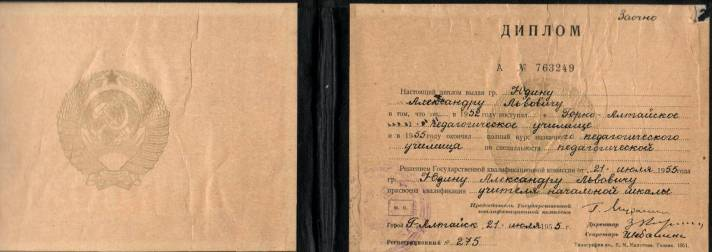 Заочно
ДИПЛОМ
А № 763249
Настоящий диплом выдан гр. Юдину
Александру Львовичу
в том, что он в 1952 году поступил в Горно-Алтайское
педагогическое училище
и в 1955 году окончил полный курс названного педагогического
училища по специальности педагогической
Решением Государственной квалификационной комиссии от 21 июля 1955
гр. Юдину Александру Львовичу
присвоена квалификация учителя начальной школы
Председатель Государственной
квалификационной комиссии
М. П.
Город Г-Алтайск 21 июля 1955 г.
Директор
Секретарь
Регистрационный № 275